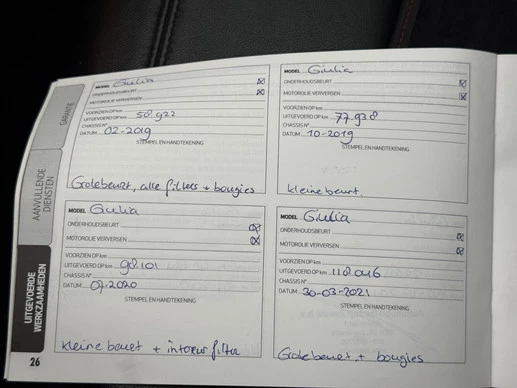 GARANTIE
AANVULLENDE
DIENSTEN
UITGEVOERDE
WERKZAAMHEDEN
26
MODEL Giulia
ONDERHOUDSBEURT
MOTOROLIE VERVERSEN
VOORZIEN OP km
UITGEVOERD OP km 58.922
CHASSIS N°
DATUM 02-2019
STEMPEL EN HANDTEKENING
Grotebeurt, alle filters + bougies
MODEL Giulia
ONDERHOUDSBEURT
MOTOROLIE VERVERSEN
VOORZIEN OP km
UITGEVOERD OP km 77.938
CHASSIS N°
DATUM 10-2019
STEMPEL EN HANDTEKENING
kleine beurt.
MODEL Giulia
ONDERHOUDSBEURT
MOTOROLIE VERVERSEN
VOORZIEN OP km
UITGEVOERD OP km 98.101
CHASSIS N°
DATUM 07-2020
STEMPEL EN HANDTEKENING
kleine beurt + interieur filter
MODEL Giulia
ONDERHOUDSBEURT
MOTOROLIE VERVERSEN
VOORZIEN OP km
UITGEVOERD OP km 118.046
CHASSIS N°
DATUM 30-03-2021
STEMPEL EN HANDTEKENING
Grote beurt + bougies